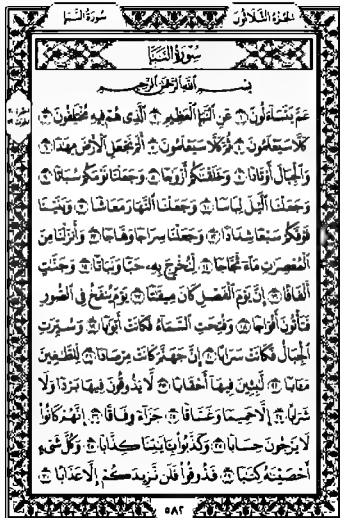 سُورَةُ النَّبَإِ
الجُزْءُ الثَّلَاثُونَ
سُورَةُ النَّبَإِ
بِسْمِ اللَّهِ الرَّحْمَٰنِ الرَّحِيمِ
عَمَّ يَتَسَاءَلُونَ ۝١ عَنِ النَّبَإِ الْعَظِيمِ ۝٢ الَّذِي هُمْ فِيهِ مُخْتَلِفُونَ ۝٣
كَلَّا سَيَعْلَمُونَ ۝٤ ثُمَّ كَلَّا سَيَعْلَمُونَ ۝٥ أَلَمْ نَجْعَلِ الْأَرْضَ مِهَادًا ۝٦
وَالْجِبَالَ أَوْتَادًا ۝٧ وَخَلَقْنَاكُمْ أَزْوَاجًا ۝٨ وَجَعَلْنَا نَوْمَكُمْ سُبَاتًا ۝٩
وَجَعَلْنَا اللَّيْلَ لِبَاسًا ۝١٠ وَجَعَلْنَا النَّهَارَ مَعَاشًا ۝١١ وَبَنَيْنَا
فَوْقَكُمْ سَبْعًا شِدَادًا ۝١٢ وَجَعَلْنَا سِرَاجًا وَهَّاجًا ۝١٣ وَأَنْزَلْنَا مِنَ
الْمُعْصِرَاتِ مَاءً ثَجَّاجًا ۝١٤ لِنُخْرِجَ بِهِ حَبًّا وَنَبَاتًا ۝١٥ وَجَنَّاتٍ
أَلْفَافًا ۝١٦ إِنَّ يَوْمَ الْفَصْلِ كَانَ مِيقَاتًا ۝١٧ يَوْمَ يُنْفَخُ فِي الصُّورِ
فَتَأْتُونَ أَفْوَاجًا ۝١٨ وَفُتِحَتِ السَّمَاءُ فَكَانَتْ أَبْوَابًا ۝١٩ وَسُيِّرَتِ
الْجِبَالُ فَكَانَتْ سَرَابًا ۝٢٠ إِنَّ جَهَنَّمَ كَانَتْ مِرْصَادًا ۝٢١ لِلطَّاغِينَ
مَآبًا ۝٢٢ لَابِثِينَ فِيهَا أَحْقَابًا ۝٢٣ لَا يَذُوقُونَ فِيهَا بَرْدًا وَلَا
شَرَابًا ۝٢٤ إِلَّا حَمِيمًا وَغَسَّاقًا ۝٢٥ جَزَاءً وِفَاقًا ۝٢٦ إِنَّهُمْ كَانُوا
لَا يَرْجُونَ حِسَابًا ۝٢٧ وَكَذَّبُوا بِآيَاتِنَا كِذَّابًا ۝٢٨ وَكُلَّ شَيْءٍ
أَحْصَيْنَاهُ كِتَابًا ۝٢٩ فَذُوقُوا فَلَنْ نَزِيدَكُمْ إِلَّا عَذَابًا ۝٣٠
٥٨٢